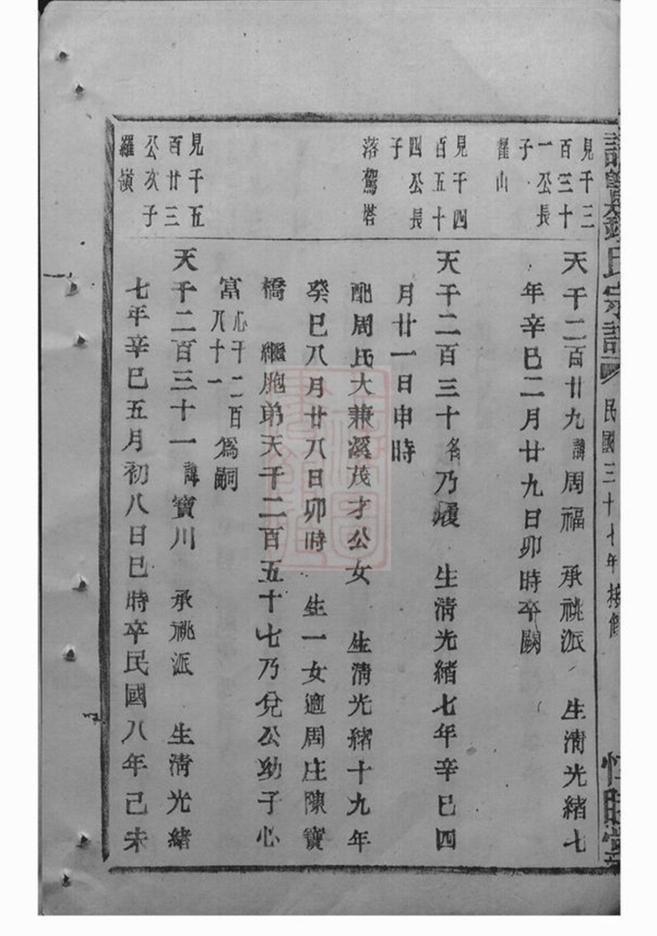 氏宗譜 民國三十七年 堂
見千三百三十一公長子 霍山
天千二百廿九諱周福 承祧派 生清光緒七
年辛巳二月廿九日卯時卒闕
見千四百五十四公長子 落駕塔
天千二百三十名乃 生清光緒七年辛巳四
月廿一日申時
配周氏大兼溪茂才公女 生清光緒十九年
癸巳八月廿八日卯時 生一女適周庄陳寶
橋 繼胞弟天千二百五十七乃兌公幼子心
富心千二百八十一為嗣
見千五百廿三公次子 羅嶺
天千二百三十一諱寶川 承祧派 生清光緒
七年辛巳五月初八日巳時卒民國八年己未